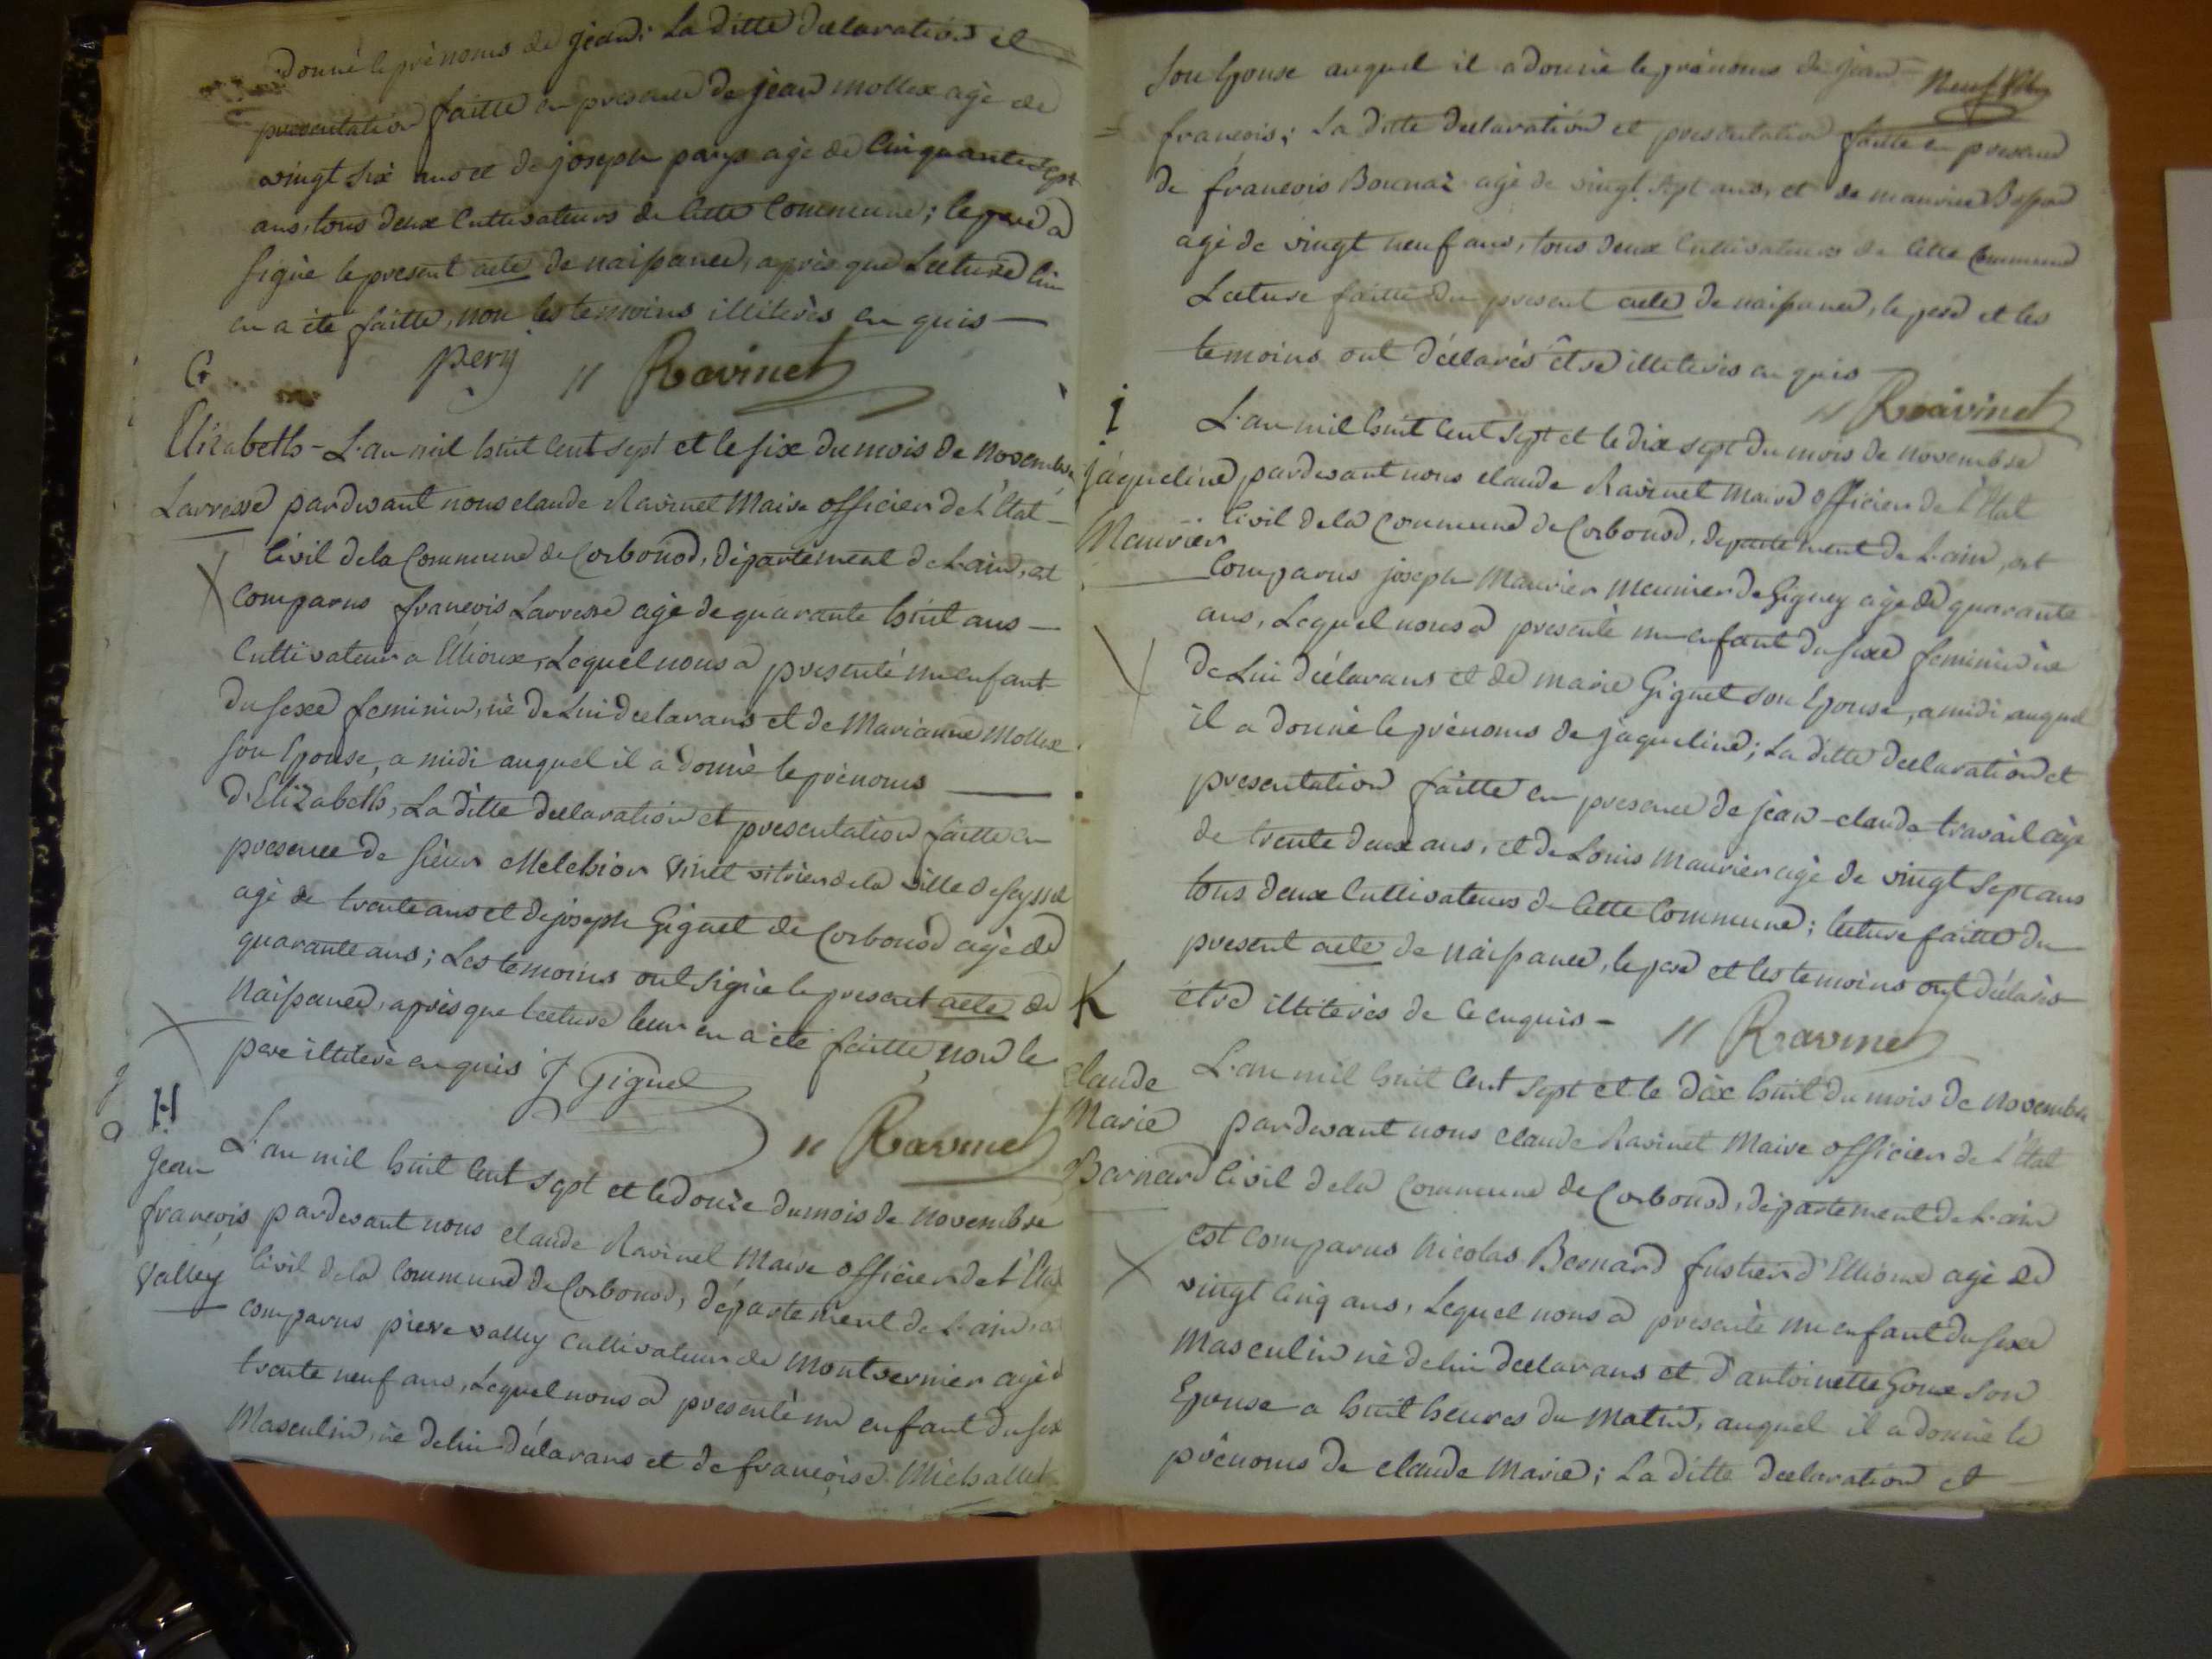 donné le prénoms de jean; La ditte déclaration et
presentation faitte en presence de jean mollex agé de
vingt six ans et de joseph pays agé de Cinquante sept
ans, tous deux Cultivateurs de Cette Commune; le pere a
signé le present acte de naissance, après que Lecture lui
en a été faitte, non les temoins illiterés en quis —
pery // Ravinet
G
Elizabeth - L'an mil huit Cent sept et le six du mois de novembre
Larresse pardevant nous claude Ravinet Maire officier de L'Etat -
Civil de la Commune de Corbonod, département de L'ain, est
Comparus françois Larresse agé de quarante huit ans —
Cultivateur a Ellioux, Lequel nous a presenté un enfant
du sexe feminin, né de Lui declarans et de Marianne Mollex
son Epouse, a midi auquel il a donné le prénoms —
d'Elizabeth, La ditte declaration et presentation faitte en
presence de sieur Melchior Vinet vitrier de la ville de seyssel
agé de trente ans et de joseph Giguet de Corbonod agé de
quarante ans; Les temoins ont signé le present acte de
Naissance, après que lecture leur en a été faitte, non le
pere illiteré en quis J Giguet
// Ravinet
H
Jean L'an mil huit Cent sept et le douze du mois de novembre
françois pardevant nous claude Ravinet Maire officier de L'Etat
Valley Civil de la Commune de Corbonod, département de L'ain, est
comparus piere valley Cultivateur de Montvernier agé d
trente neuf ans, Lequel nous a presenté un enfant du sex
Masculin, né de lui déclarans et de françoise Michallet
son Epouse auquel il a donné le prénoms de jean = Neuf
= françois; La ditte declaration et presentation faitte en presence
de françois Bonnaz agé de vingt sept ans, et de maurice Besson
agé de vingt neuf ans, tous deux Cultivateurs de Cette Commune
Lecture faitte du present acte de naissance, le pere et les
temoins ont déclarés être illiterés en quis
// Ravinet
i L'an mil huit Cent sept et le dix sept du mois de novembre
jaqueline pardevant nous claude Ravinet Maire officier de L'Etat
Maurier Civil de la Commune de Corbonod, département de L'ain, est
Comparus joseph Maurier Meunier de Gigney agé de quarante
ans, Lequel nous a presenté un enfant du sexe feminin né
de Lui déclarans et de marie Giguet son Epouse, a midi auquel
il a donné le prénoms de jaqueline; La ditte declaration et
presentation faitte en presence de jean-claude travail agé
de trente deux ans, et de Louis Maurier agé de vingt sept ans
tous deux Cultivateurs de Cette Commune; lecture faitte du
present acte de naissance, le pere et les temoins ont déclarés
être illiterés de Ce enquis - // Ravinet
K
claude L'an mil huit Cent sept et le dix huit du mois de novembre
Marie pardevant nous claude Ravinet Maire officier de L'Etat
Barnard Civil de la Commune de Corbonod, département de L'ain
est Comparus Nicolas Bernard fustier d'Ellioux agé de
vingt Cinq ans, Lequel nous a presenté un enfant du sexe
Masculin né de lui declarans et d'antoinette Goux son
Epouse a huit heures du Matin, auquel il a donné le
prénoms de claude Marie; La ditte declaration et —